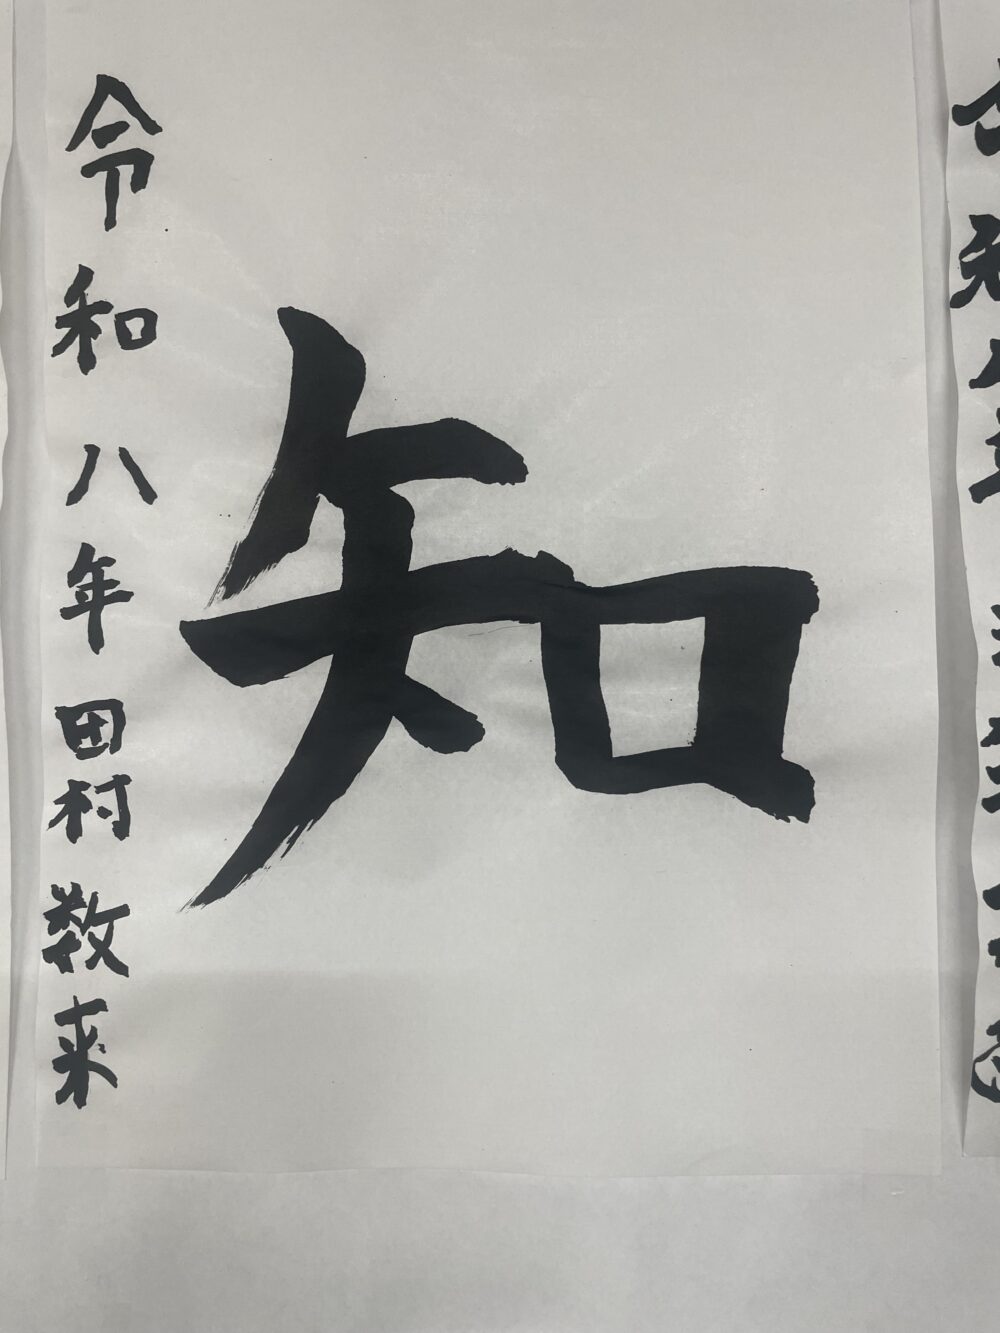 知
令和八年 田村 数来